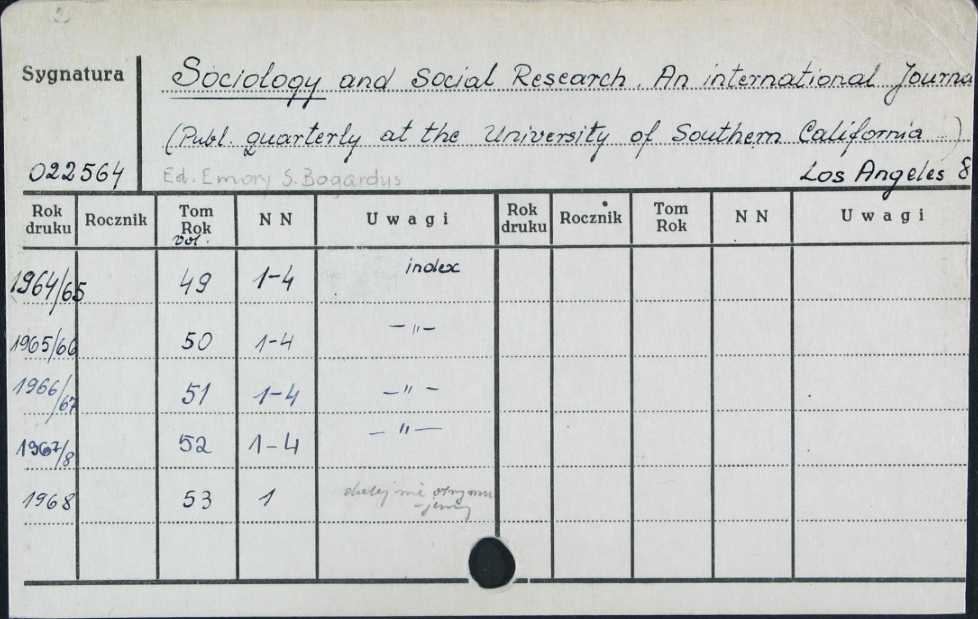 Sygnatura
Sociology and Social Research. An international Journa
(Publ. quarterly at the University of Southern California )
022564 Ed. Emory S. Bogardus Los Angeles 8
Rok druku Rocznik Tom Rok vol. N N Uwagi Rok druku Rocznik Tom Rok N N Uwagi
1964/65 49 1-4 index
1965/66 50 1-4 —"—
1966/67 51 1-4 —"—
1967/8 52 1-4 —"—
1968 53 1 dalej nie otrzymu
-jemy